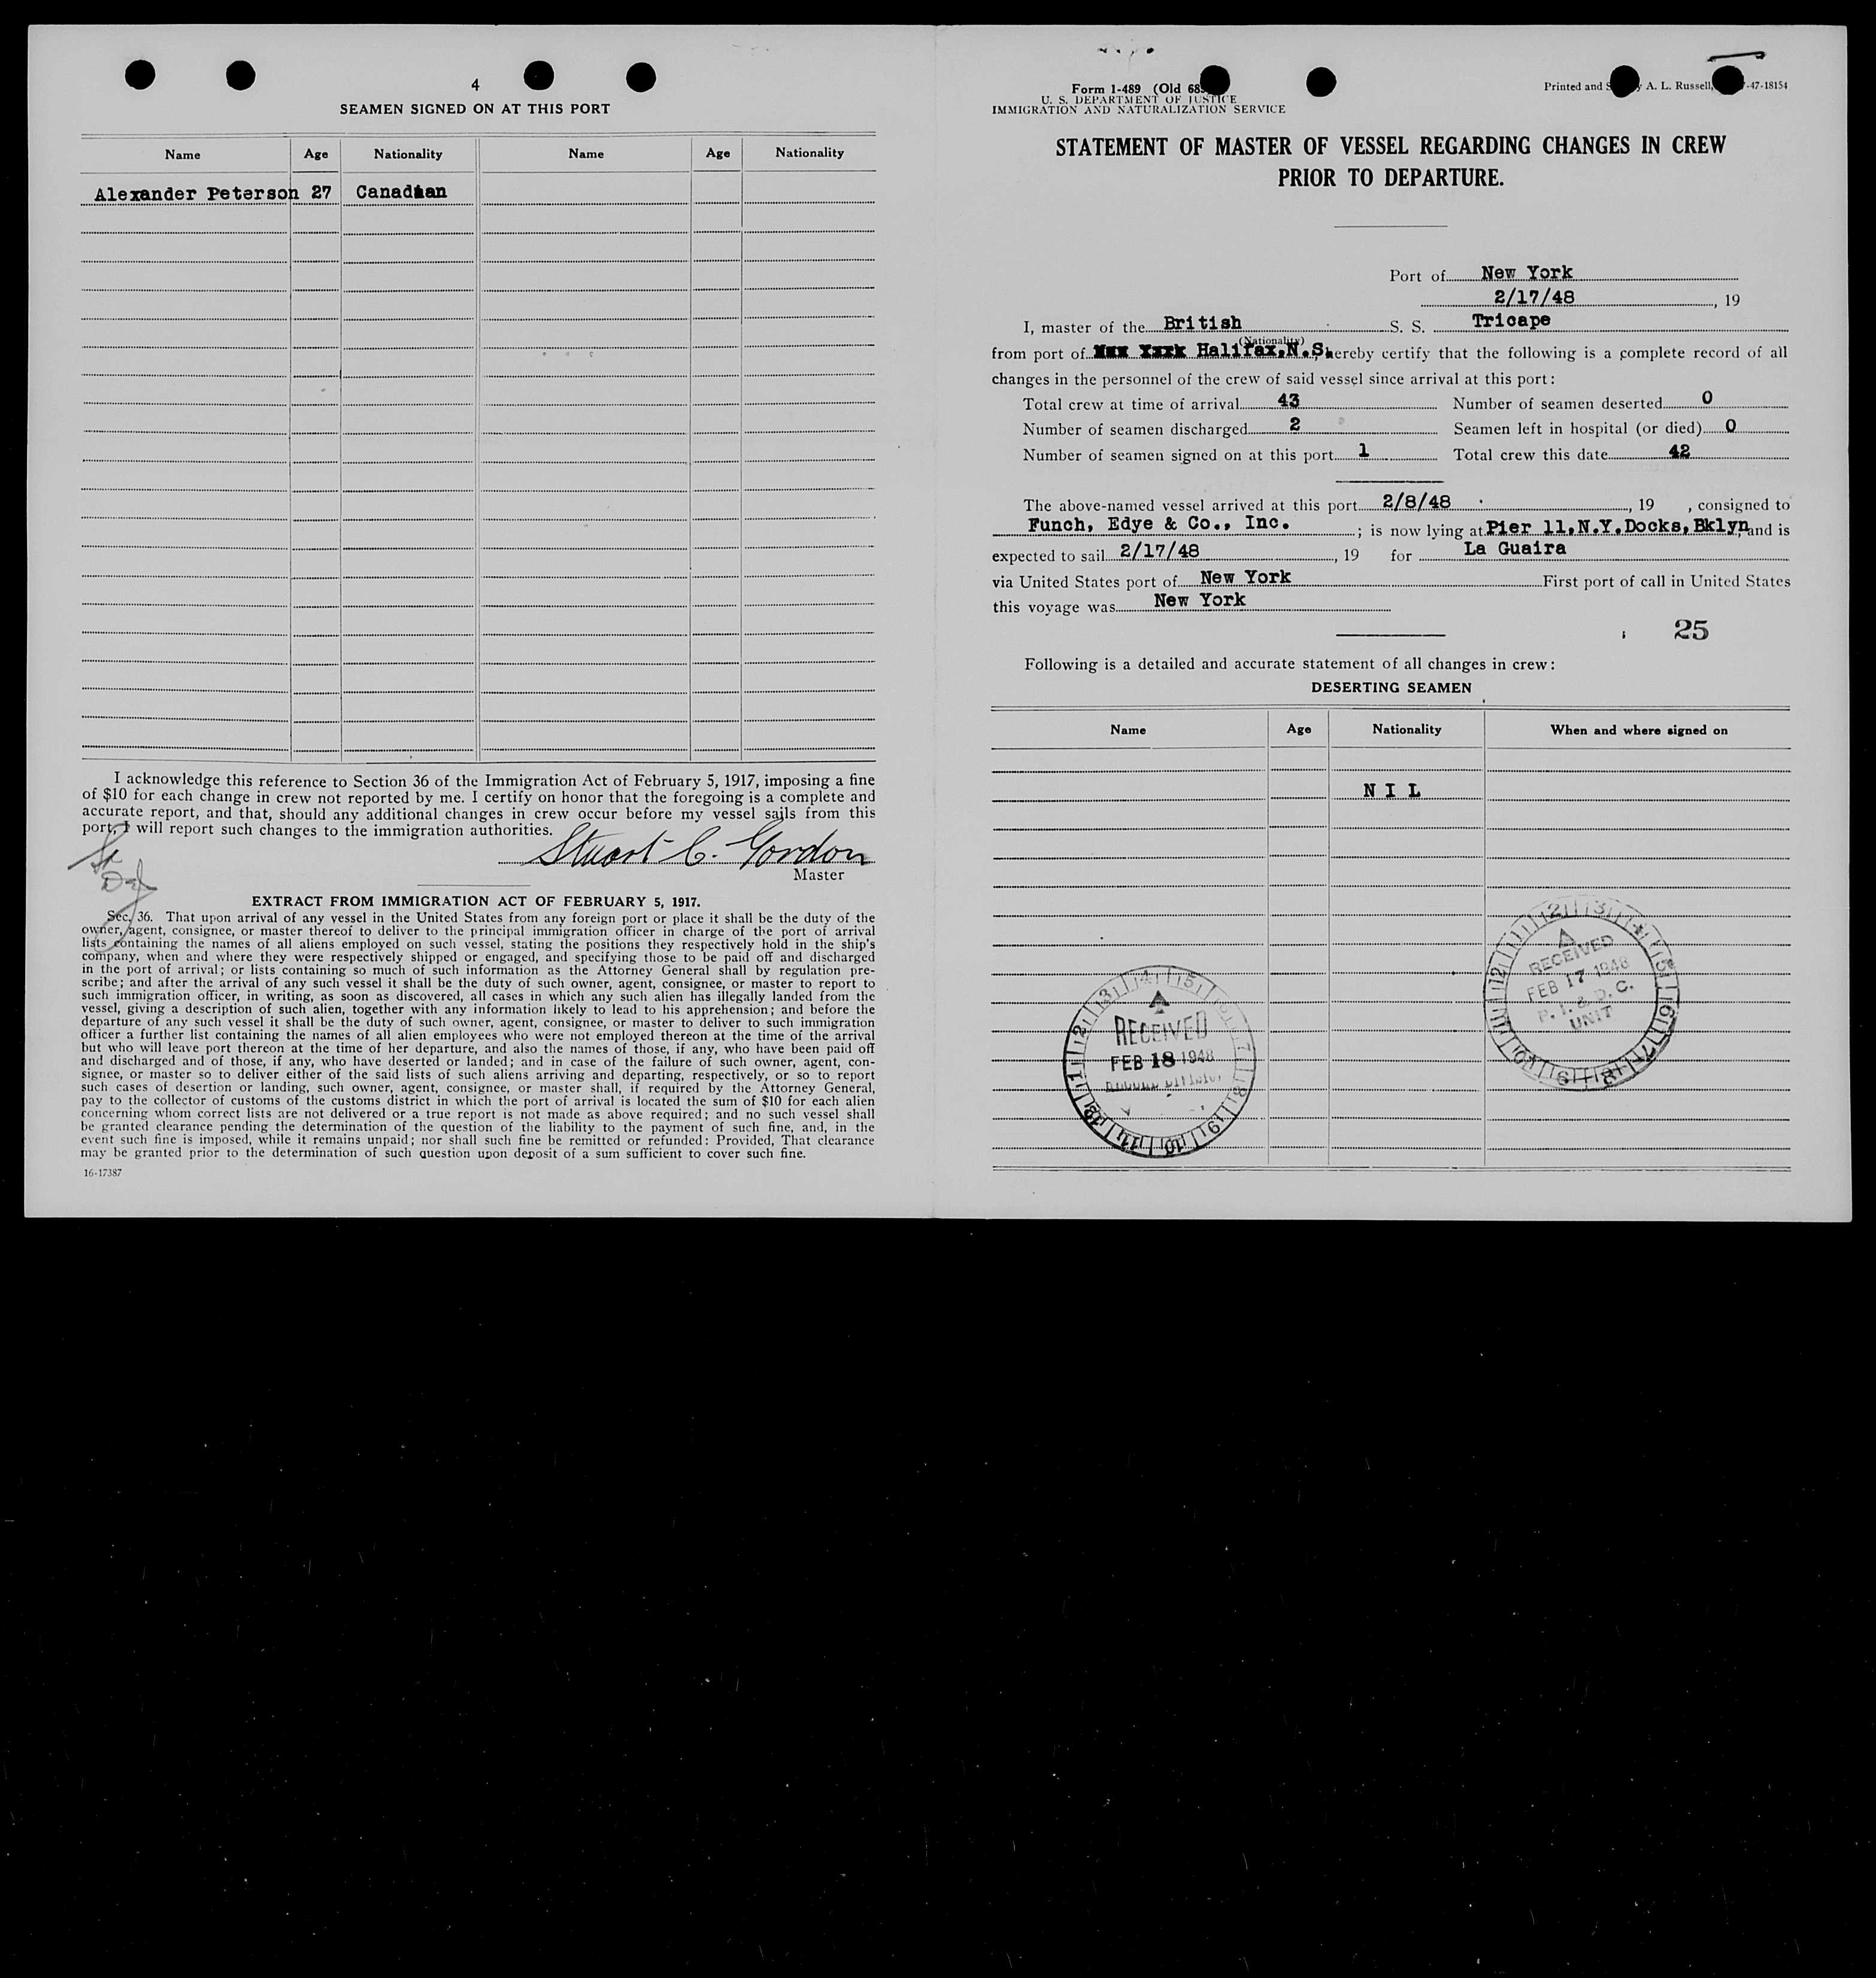 4
SEAMEN SIGNED ON AT THIS PORT
Name Age Nationality Name Age Nationality
Alexander Peterson 27 Canadian
I acknowledge this reference to Section 36 of the Immigration Act of February 5, 1917, imposing a fine
of $10 for each change in crew not reported by me. I certify on honor that the foregoing is a complete and
accurate report, and that, should any additional changes in crew occur before my vessel sails from this
port, I will report such changes to the immigration authorities.
Stuart C. Gordon
Master
EXTRACT FROM IMMIGRATION ACT OF FEBRUARY 5, 1917.
Sec. 36. That upon arrival of any vessel in the United States from any foreign port or place it shall be the duty of the
owner, agent, consignee, or master thereof to deliver to the principal immigration officer in charge of the port of arrival
lists containing the names of all aliens employed on such vessel, stating the positions they respectively hold in the ship's
company, when and where they were respectively shipped or engaged, and specifying those to be paid off and discharged
in the port of arrival; or lists containing so much of such information as the Attorney General shall by regulation pre-
scribe; and after the arrival of any such vessel it shall be the duty of such owner, agent, consignee, or master to report to
such immigration officer, in writing, as soon as discovered, all cases in which any such alien has illegally landed from the
vessel, giving a description of such alien, together with any information likely to lead to his apprehension; and before the
departure of any such vessel it shall be the duty of such owner, agent, consignee, or master to deliver to such immigration
officer a further list containing the names of all alien employees who were not employed thereon at the time of the arrival
but who will leave port thereon at the time of her departure, and also the names of those, if any, who have been paid off
and discharged and of those, if any, who have deserted or landed; and in case of the failure of such owner, agent, con-
signee, or master so to deliver either of the said lists of such aliens arriving and departing, respectively, or so to report
such cases of desertion or landing, such owner, agent, consignee, or master shall, if required by the Attorney General,
pay to the collector of customs of the customs district in which the port of arrival is located the sum of $10 for each alien
concerning whom correct lists are not delivered or a true report is not made as above required; and no such vessel shall
be granted clearance pending the determination of the question of the liability to the payment of such fine, and, in the
event such fine is imposed, while it remains unpaid; nor shall such fine be remitted or refunded: Provided, That clearance
may be granted prior to the determination of such question upon deposit of a sum sufficient to cover such fine.
16-17387
Form 1-489 (Old 68
U. S. DEPARTMENT OF JUSTICE
IMMIGRATION AND NATURALIZATION SERVICE
Printed and S y A. L. Russell, -47-18154
STATEMENT OF MASTER OF VESSEL REGARDING CHANGES IN CREW
PRIOR TO DEPARTURE.
Port of New York
2/17/48, 19
I, master of the British S. S. Tricape
(Nationality)
from port of Halifax, N.S. hereby certify that the following is a complete record of all
changes in the personnel of the crew of said vessel since arrival at this port:
Total crew at time of arrival 43 Number of seamen deserted 0
Number of seamen discharged 2 Seamen left in hospital (or died) 0
Number of seamen signed on at this port 1 Total crew this date 42
The above-named vessel arrived at this port 2/8/48, 19 , consigned to
Funch, Edye & Co., Inc.; is now lying at Pier 11, N.Y. Docks, Bklyn, and is
expected to sail 2/17/48, 19 for La Guaira
via United States port of New York First port of call in United States
this voyage was New York
25
Following is a detailed and accurate statement of all changes in crew:
DESERTING SEAMEN
Name Age Nationality When and where signed on
N I L
RECEIVED
FEB 17 1948
P. I. & D. C.
UNIT
RECEIVED
FEB 18 1948